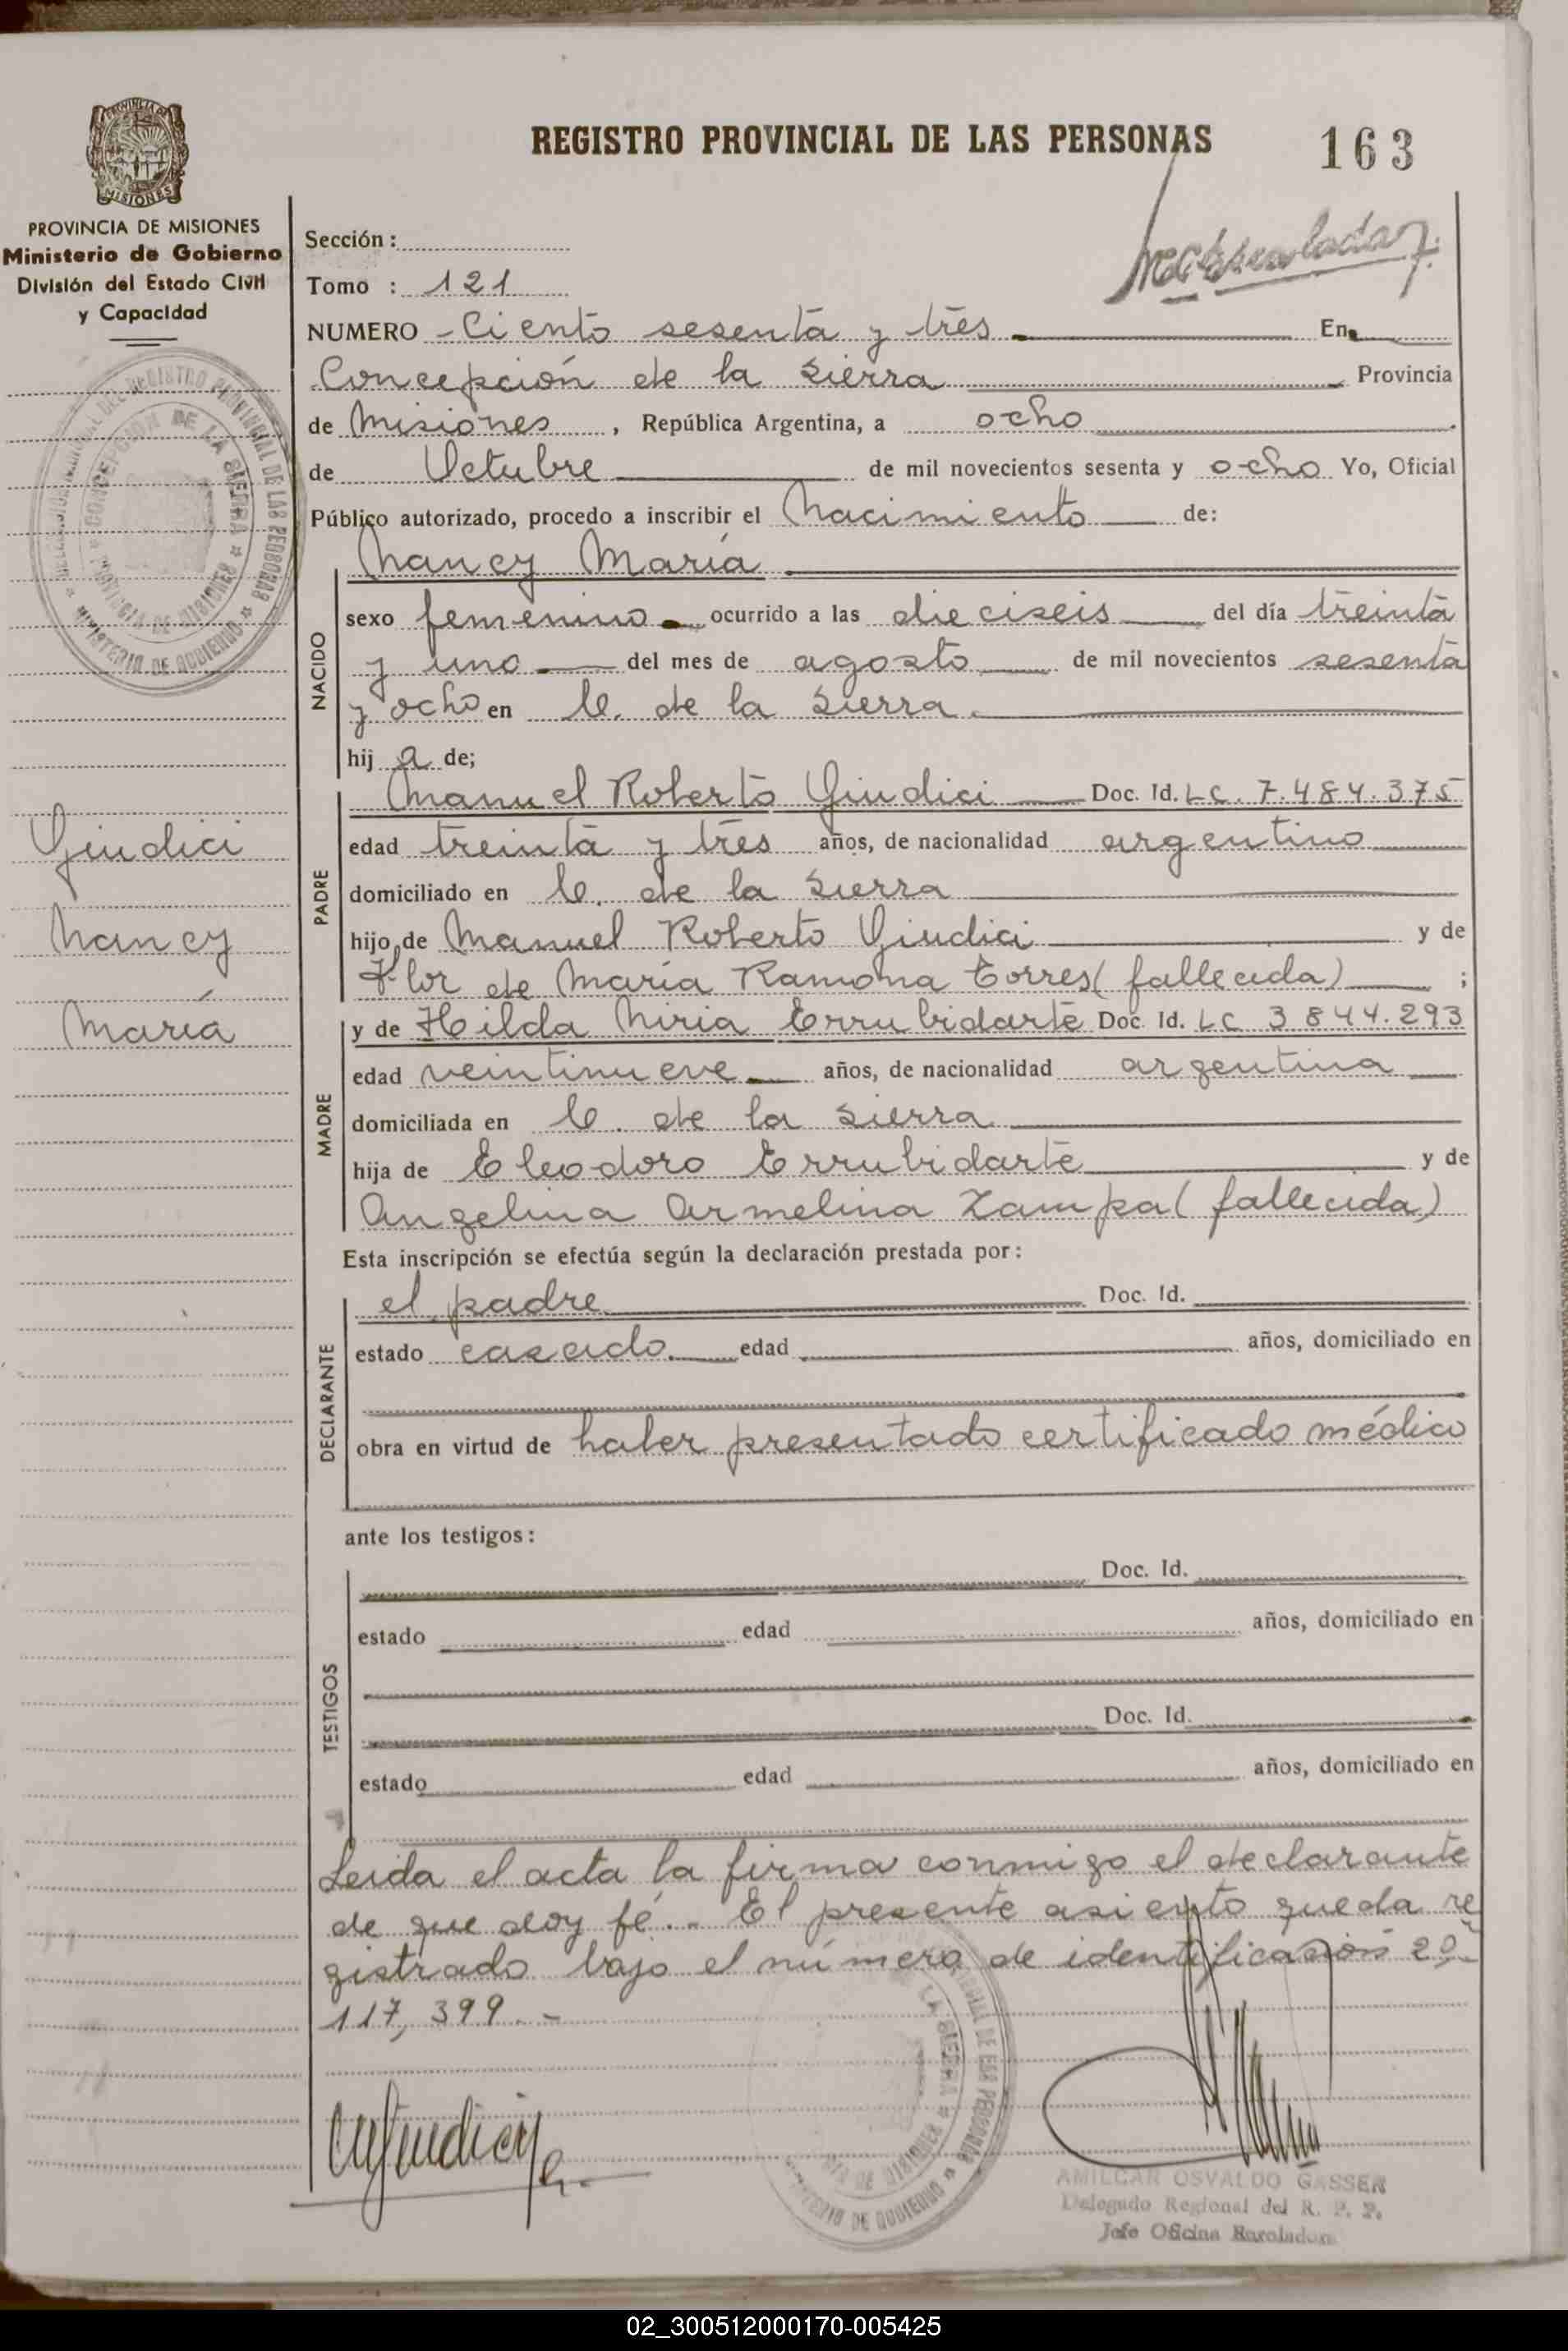 REGISTRO PROVINCIAL DE LAS PERSONAS
163
PROVINCIA DE MISIONES
Ministerio de Gobierno
División del Estado Civil
y Capacidad
Sección :
Tomo : 121
NUMERO - Ciento sesenta y tres En
Concepción de la Sierra Provincia
de Misiones , República Argentina, a ocho
de Octubre de mil novecientos sesenta y ocho Yo, Oficial
Público autorizado, procedo a inscribir el Nacimiento de:
Nancy María
NACIDO
sexo femenino ocurrido a las dieciseis del día treinta
y uno del mes de agosto de mil novecientos sesenta
y ocho en C. de la Sierra
hij a de;
PADRE
Manuel Roberto Giudici Doc. Id. LC. 7.484.375
edad treinta y tres años, de nacionalidad argentino
domiciliado en C. de la Sierra
hijo de Manuel Roberto Giudici y de
Flor de María Ramona Torres (fallecida) ;
MADRE
y de Hilda Niria Errubidarte Doc. Id. LC 3844.293
edad veintinueve años, de nacionalidad argentina
domiciliada en C. de la Sierra
hija de Eleodoro Errubidarte y de
Angelina Armelina Zampa (fallecida)
Esta inscripción se efectúa según la declaración prestada por :
DECLARANTE
el padre Doc. Id.
estado casado. edad años, domiciliado en
obra en virtud de haber presentado certificado médico
ante los testigos :
TESTIGOS
Doc. Id.
estado edad años, domiciliado en
Doc. Id.
estado edad años, domiciliado en
Leida el acta la firma conmigo el declarante
de que doy fé.. El presente asiento queda re
gistrado bajo el número de identificación 20.
117,399.-
Giudici
Nancy
María
CONCEPCION DE LA SIERRA
PROVINCIA DE MISIONES
MINISTERIO DE GOBIERNO
AMILCAR OSVALDO GASSER
Delegado Regional del R. P. P.
Jefe Oficina
02_300512000170-005425